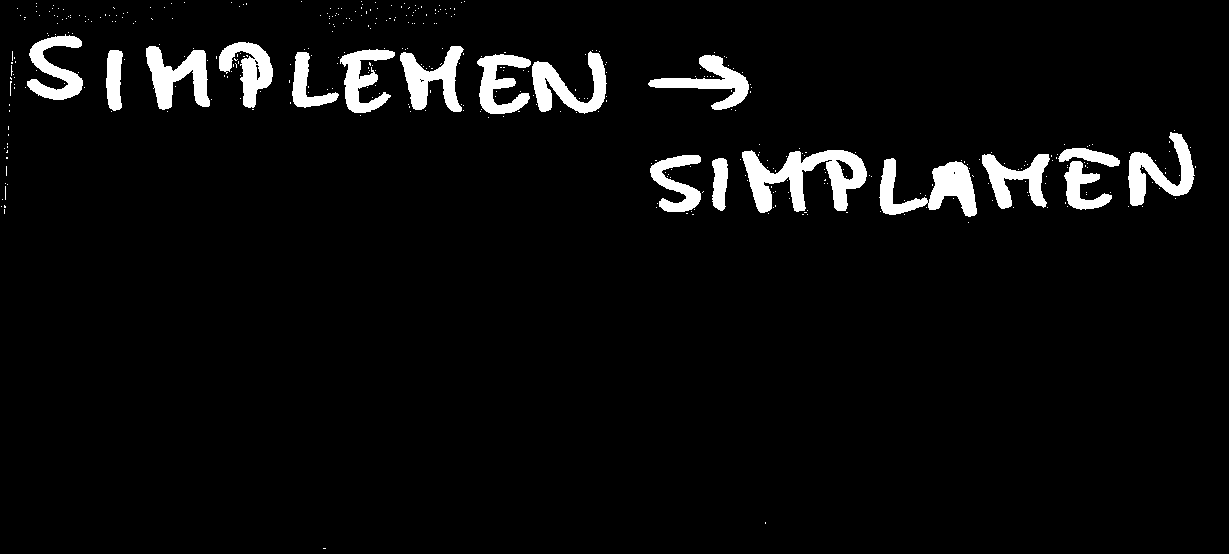 SIMPLEMEN →
SIMPLAMEN